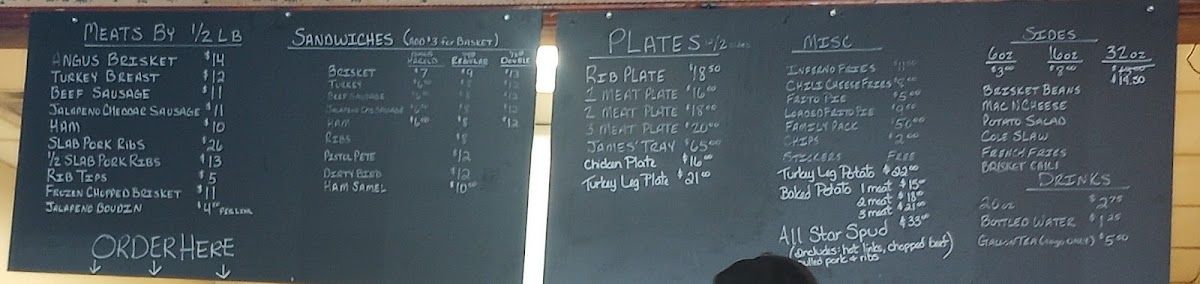 MEATS BY 1/2 LB
ANGUS BRISKET $14
TURKEY BREAST $12
BEEF SAUSAGE $11
JALAPENO CHEDDAR SAUSAGE $11
HAM $10
SLAB PORK RIBS $26
1/2 SLAB PORK RIBS $13
RIB TIPS $5
FROZEN CHOPPED BRISKET $11
JALAPENO BOUDIN $4 PER LINK
ORDER HERE
SANDWICHES (ADD $3 FOR BASKET)
HAROLD REGULAR DOUBLE
BRISKET $7 $9 $13
TURKEY $8 $12
BEEF SAUSAGE $8 $12
JALAPENO CHS SAUSAGE $8 $12
HAM $6.00 $8 $12
RIBS $8
PISTOL PETE $12
DIRTY BIRD $12
HAM SAMEL $10.00
PLATES W/2 SIDES
RIB PLATE $18.50
1 MEAT PLATE $16.00
2 MEAT PLATE $18.00
3 MEAT PLATE $20.00
JAMES' TRAY $65.00
Chicken Plate $16.00
Turkey Leg Plate $21.00
MISC
INFERNO FRIES
CHILI CHEESE FRIES
FRITO PIE $5.00
LOADED FRITO PIE
FAMILY PACK $50.00
CHIPS
STICKERS FREE
Turkey Leg Potato $22.00
Baked Potato 1 meat $15.00
2 meat $18.00
3 meat $21.00
All Star Spud $33.00
(Includes: hot links, chopped beef,
pulled pork & ribs
SIDES
6oz 16oz 32oz
$3.00 $8.00
$14.50
BRISKET BEANS
MAC N CHEESE
POTATO SALAD
COLE SLAW
FRENCH FRIES
BRISKET CHILI
DRINKS
20oz $2.75
BOTTLED WATER $1.25
GALLON TEA (TOGO ONLY) $5.00